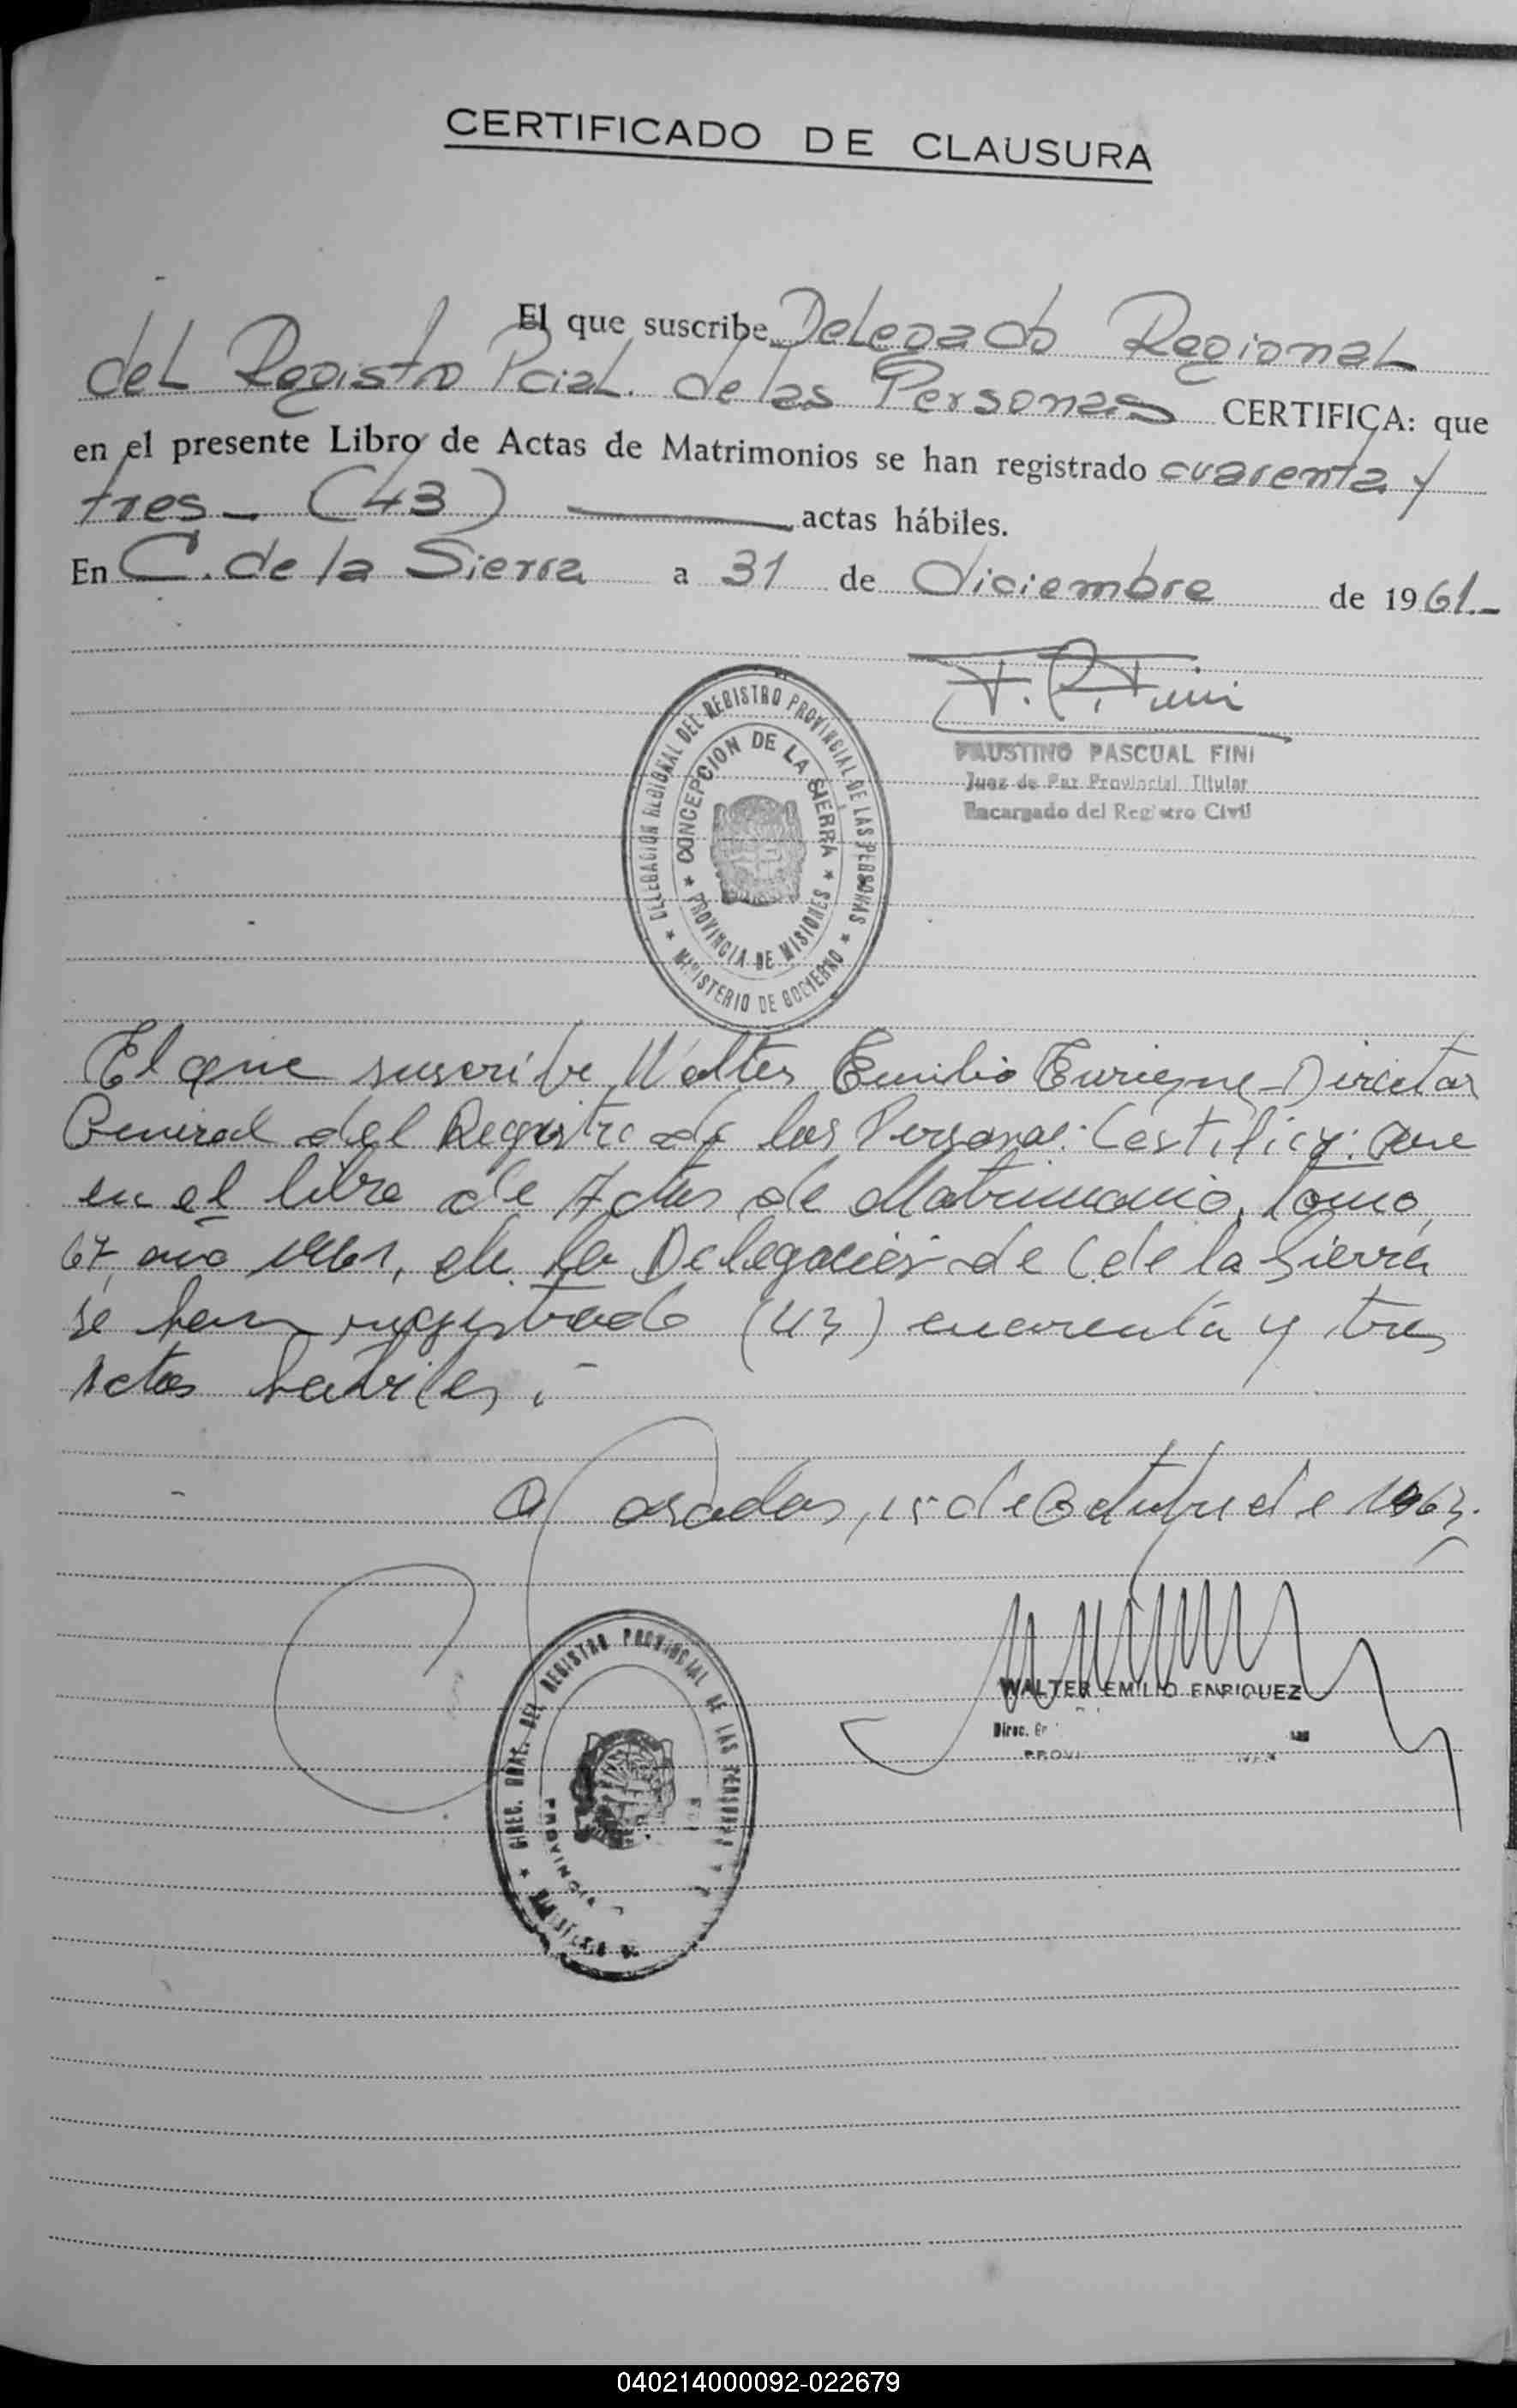 CERTIFICADO DE CLAUSURA
El que suscribe Delegado Regional
del Registro Pcial. de las Personas CERTIFICA: que
en el presente Libro de Actas de Matrimonios se han registrado cuarenta y
tres - (43) actas hábiles.
En C. de la Sierra a 31 de diciembre de 1961.-
F. P. Fini
FAUSTINO PASCUAL FINI
Juez de Paz Provincial Titular
Encargado del Registro Civil
DELEGACION REGIONAL DEL REGISTRO PROVINCIAL DE LAS PERSONAS
MINISTERIO DE GOBIERNO
CONCEPCION DE LA SIERRA
PROVINCIA DE MISIONES
El que suscribe, Walter Emilio Enrique - Director
General del Registro de las Personas: Certifica: que
en el libro de Actas de Matrimonio, Tomo,
67, año 1961, de la Delegación de C. de la Sierra
se han registrado (43) cuarenta y tres
Actas habiles.-
Posadas, 15 de Octubre de 1963.
WALTER EMILIO ENRIQUEZ
Direc.
DIREC. GRAL. DEL REGISTRO PROVINCIAL DE LAS PERSONAS
PROVINCIA
040214000092-022679